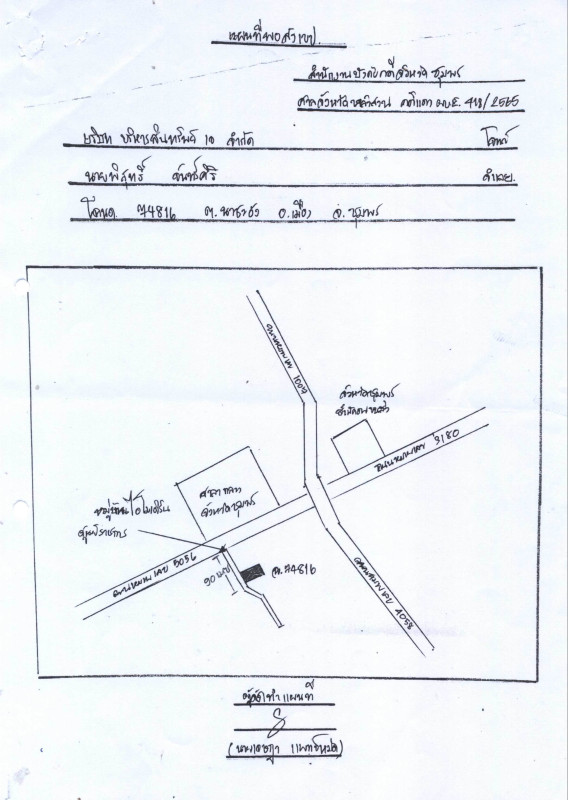 แผนที่พอสังเขป
สำนักงานบังคับคดีจังหวัดชุมพร
ศาลจังหวัดหลังสวน คดีแดง ผบE. 418/2565
บริษัท บริหารสินทรัพย์ จำกัด โจทก์
นายพิสุทธิ์ จำเลย
โฉนด. 74816 ต. นาชะอัง อ. เมือง จ. ชุมพร
ถนนหมายเลข 1009
จังหวัดชุมพร
ถนนหมายเลข 3180
ศาลากลาง
จังหวัดชุมพร
หมู่บ้านไอโมเดิร์น
ศูนย์ราชการ
ถนนหมายเลข 5056
90 เมตร
ฉ. 74816
ถนนหมายเลข 4058
ผู้จัดทำแผนที่